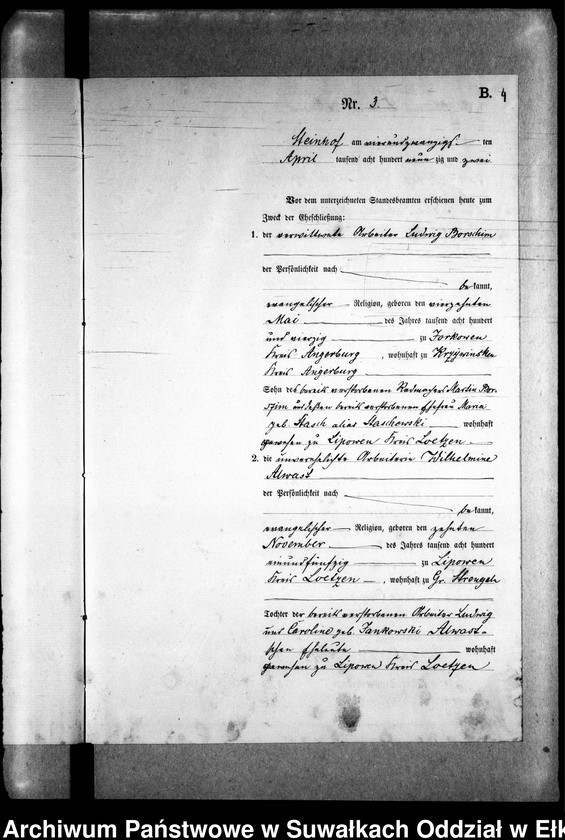 B. 4
Nr. 3.
Steinhof am vierundzwanzigs ten
April tausend acht hundert neun zig und zwei
Vor dem unterzeichneten Standesbeamten erschienen heute zum
Zweck der Eheschließung:
1. der verwittwete Arbeiter Ludwig Borschim
der Persönlichkeit nach
be kannt,
evangelischer Religion, geboren den vierzehnten
Mai des Jahres tausend acht hundert
und vierzig zu Jorkowen
Kreis Angerburg, wohnhaft zu
Kreis Angerburg
Sohn des bereits verstorbenen Radmachers Martin Bor-
schim und dessen bereits verstorbenen Ehefrau Maria
geb. Stasch alias Staschowski wohnhaft
gewesen zu Lipowen Kreis Loetzen
2. die unverehelichte Arbeiterin Wilhelmine
Alwast
der Persönlichkeit nach
be kannt,
evangelischer Religion, geboren den zehnten
November des Jahres tausend acht hundert
einundfünfzig zu Lipowen
Kreis Loetzen, wohnhaft zu Gr. Strengeln
Tochter der bereits verstorbenen Arbeiter Ludwig
und Caroline geb. Jankowski Alwast-
schen Eheleute wohnhaft
gewesen zu Lipowen Kreis Loetzen
Archiwum Państwowe w Suwałkach Oddział w Ełk